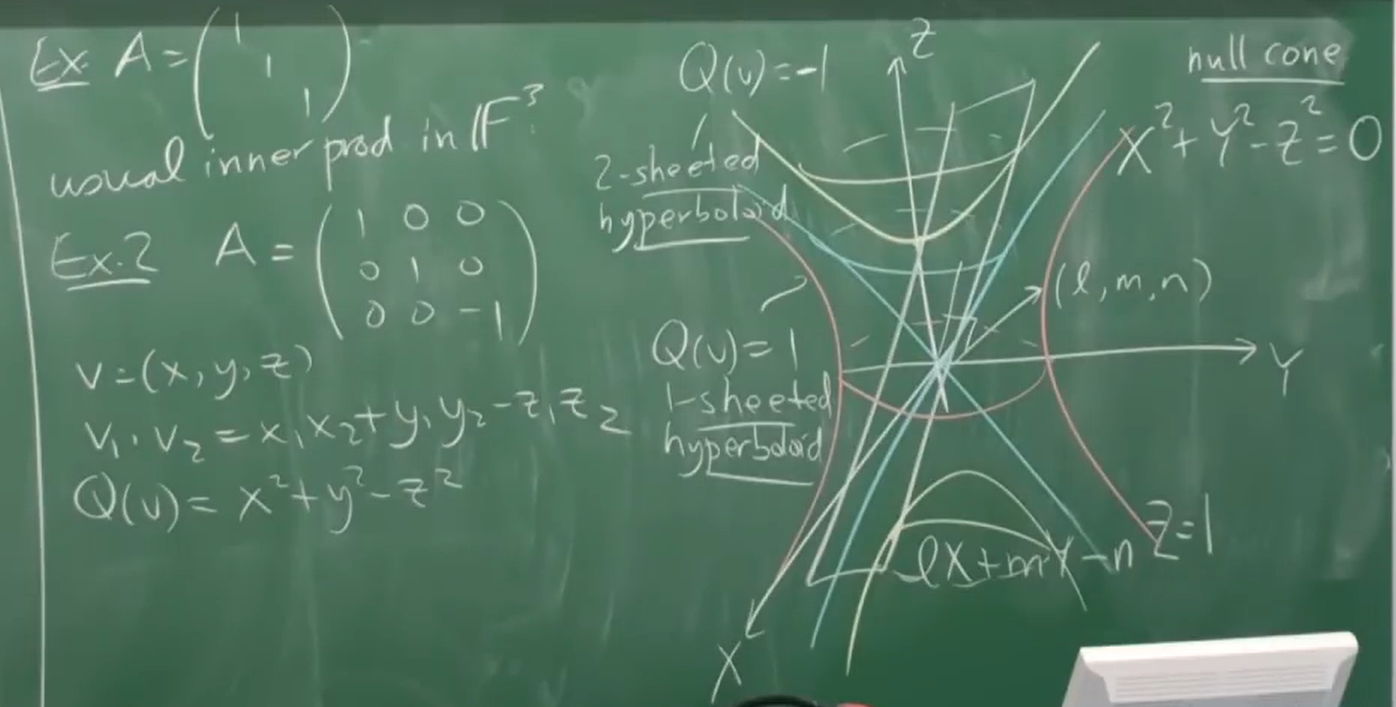 Ex. A = (1 1 1)
usual inner prod in 𝔽³
Ex.2 A = (1 0 0
0 1 0
0 0 -1)
v=(x,y,z)
v₁·v₂ = x₁x₂+y₁y₂-z₁z₂
Q(v)= x²+y²-z²
Q(v)=-1
2-sheeted
hyperboloid
Q(v)=1
1-sheeted
hyperboloid
Z
null cone
X²+Y²-Z²=0
(l,m,n)
Y
lX+mY-nZ=1
X